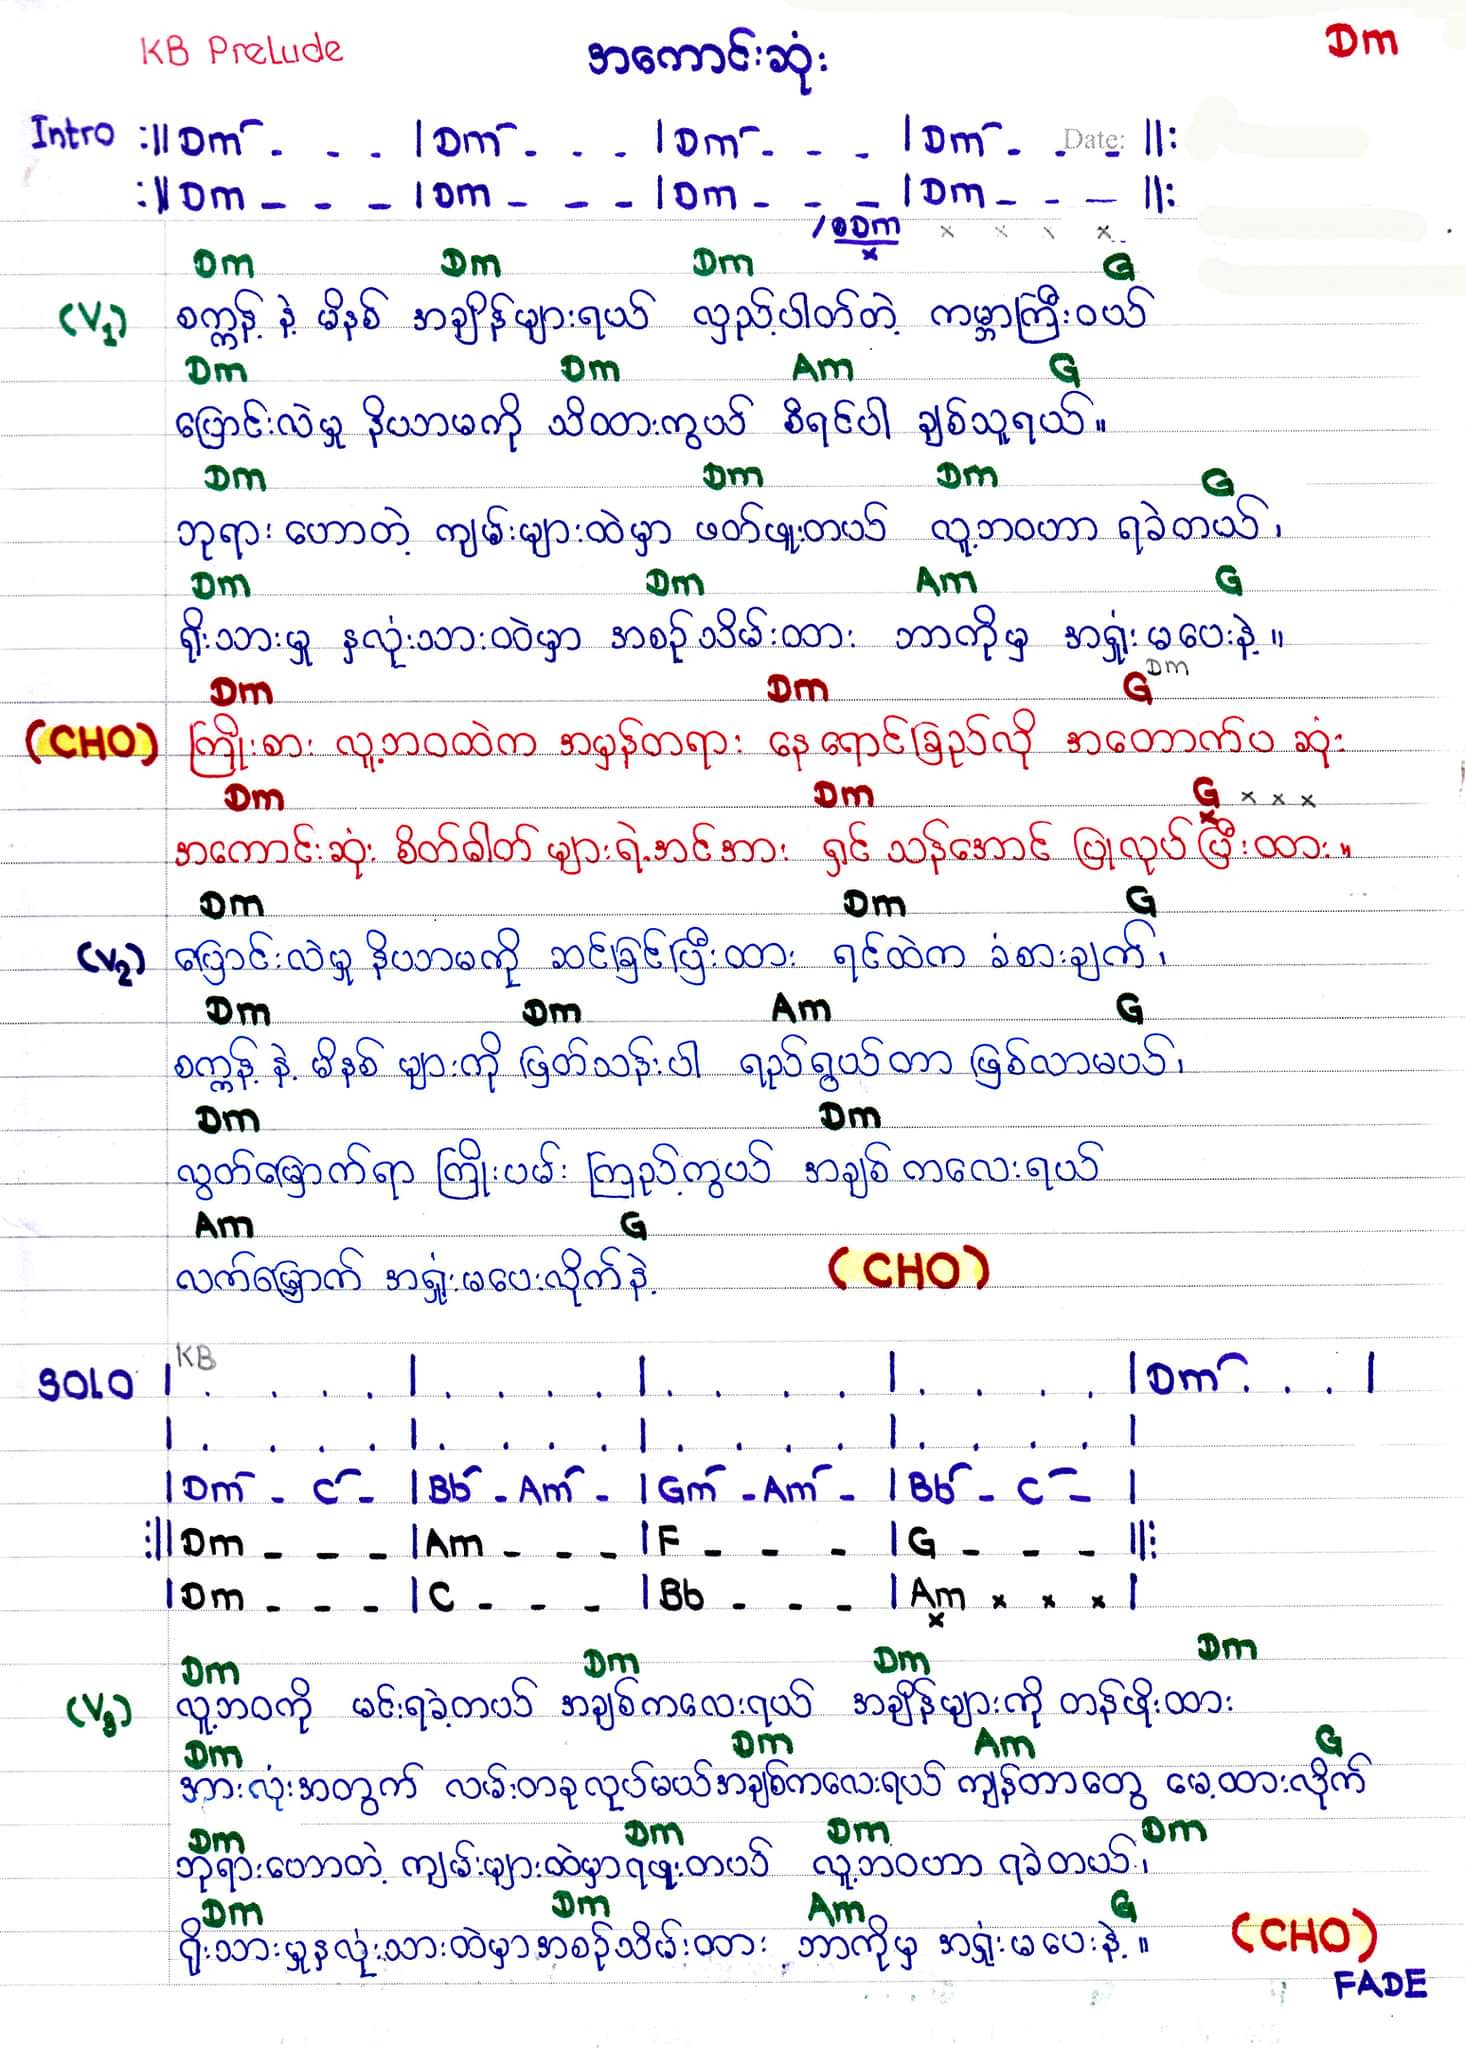 KB Prelude အကောင်းဆုံး Dm
Intro :|| Dm - - - | Dm - - - | Dm - - - | Dm - - - ||: Date:
:|| Dm - - - | Dm - - - | Dm - - - | Dm - - - ||:
Dm x x x x
Dm Dm Dm G
(V1) စက္ကန့် နဲ့ မိနစ် အချိန်များရယ် လှည့်ပါတ်တဲ့ ကမ္ဘာကြီးဝယ်
Dm Dm Am G
ပြောင်းလဲမှု နိယာမကို သိထားကွယ် စီရင်ပါ ချစ်သူရယ်။
Dm Dm Dm G
ဘုရား ဟောတဲ့ ကျမ်းများထဲမှာ ဖတ်ဖူးတယ် လူ့ဘဝဟာ ရခဲတယ်၊
Dm Dm Am G
ရိုးသားမှု နှလုံးသားထဲမှာ အစဉ်သိမ်းထား ဘာကိုမှ အရှုံးမပေးနဲ့။
Dm Dm G Dm
(CHO) ကြိုးစား လူ့ဘဝထဲက အမှန်တရား နေရောင်ခြည်လို အတောက်ပ ဆုံး
Dm Dm G x x x
အကောင်းဆုံး စိတ်ဓါတ်များရဲ့အင်အား ရှင်သန်အောင် ပြုလုပ်ပြီးထား။
Dm Dm G
(V2) ပြောင်းလဲမှု နိယာမကို ဆင်ခြင်ပြီးထား ရင်ထဲက ခံစားချက်၊
Dm Dm Am G
စက္ကန့် နဲ့ မိနစ် များကို ဖြတ်သန်းပါ ရည်ရွယ်တာ ဖြစ်လာမယ်၊
Dm Dm
လွတ်မြောက်ရာ ကြိုးပမ်း ကြည့်ကွယ် အချစ်ကလေးရယ်
Am G
လက်မြှောက် အရှုံးမပေးလိုက်နဲ့ (CHO)
SOLO | KB . . . . | . . . . | . . . . | . . . . | Dm . . . |
| . . . . | . . . . | . . . . | . . . . |
| Dm - C - | Bb - Am - | Gm - Am - | Bb - C - |
:|| Dm - - - | Am - - - | F - - - | G - - - ||:
| Dm - - - | C - - - | Bb - - - | Am x x x |
Dm Dm Dm Dm
(V3) လူ့ဘဝကို မင်းရခဲ့တယ် အချစ်ကလေးရယ် အချိန်များကို တန်ဖိုးထား
Dm Dm Am G
အားလုံးအတွက် လမ်းတခုလုပ်မယ်အချစ်ကလေးရယ် ကျန်တာတွေ မေ့ထားလိုက်
Dm Dm Dm Dm
ဘုရားဟောတဲ့ ကျမ်းများထဲမှာရဖူးတယ် လူ့ဘဝဟာ ရခဲတယ်၊
Dm Dm Am G
ရိုးသားမှုနှလုံးသားထဲမှာအစဉ်သိမ်းထား ဘာကိုမှ အရှုံးမပေးနဲ့။ (CHO)
FADE